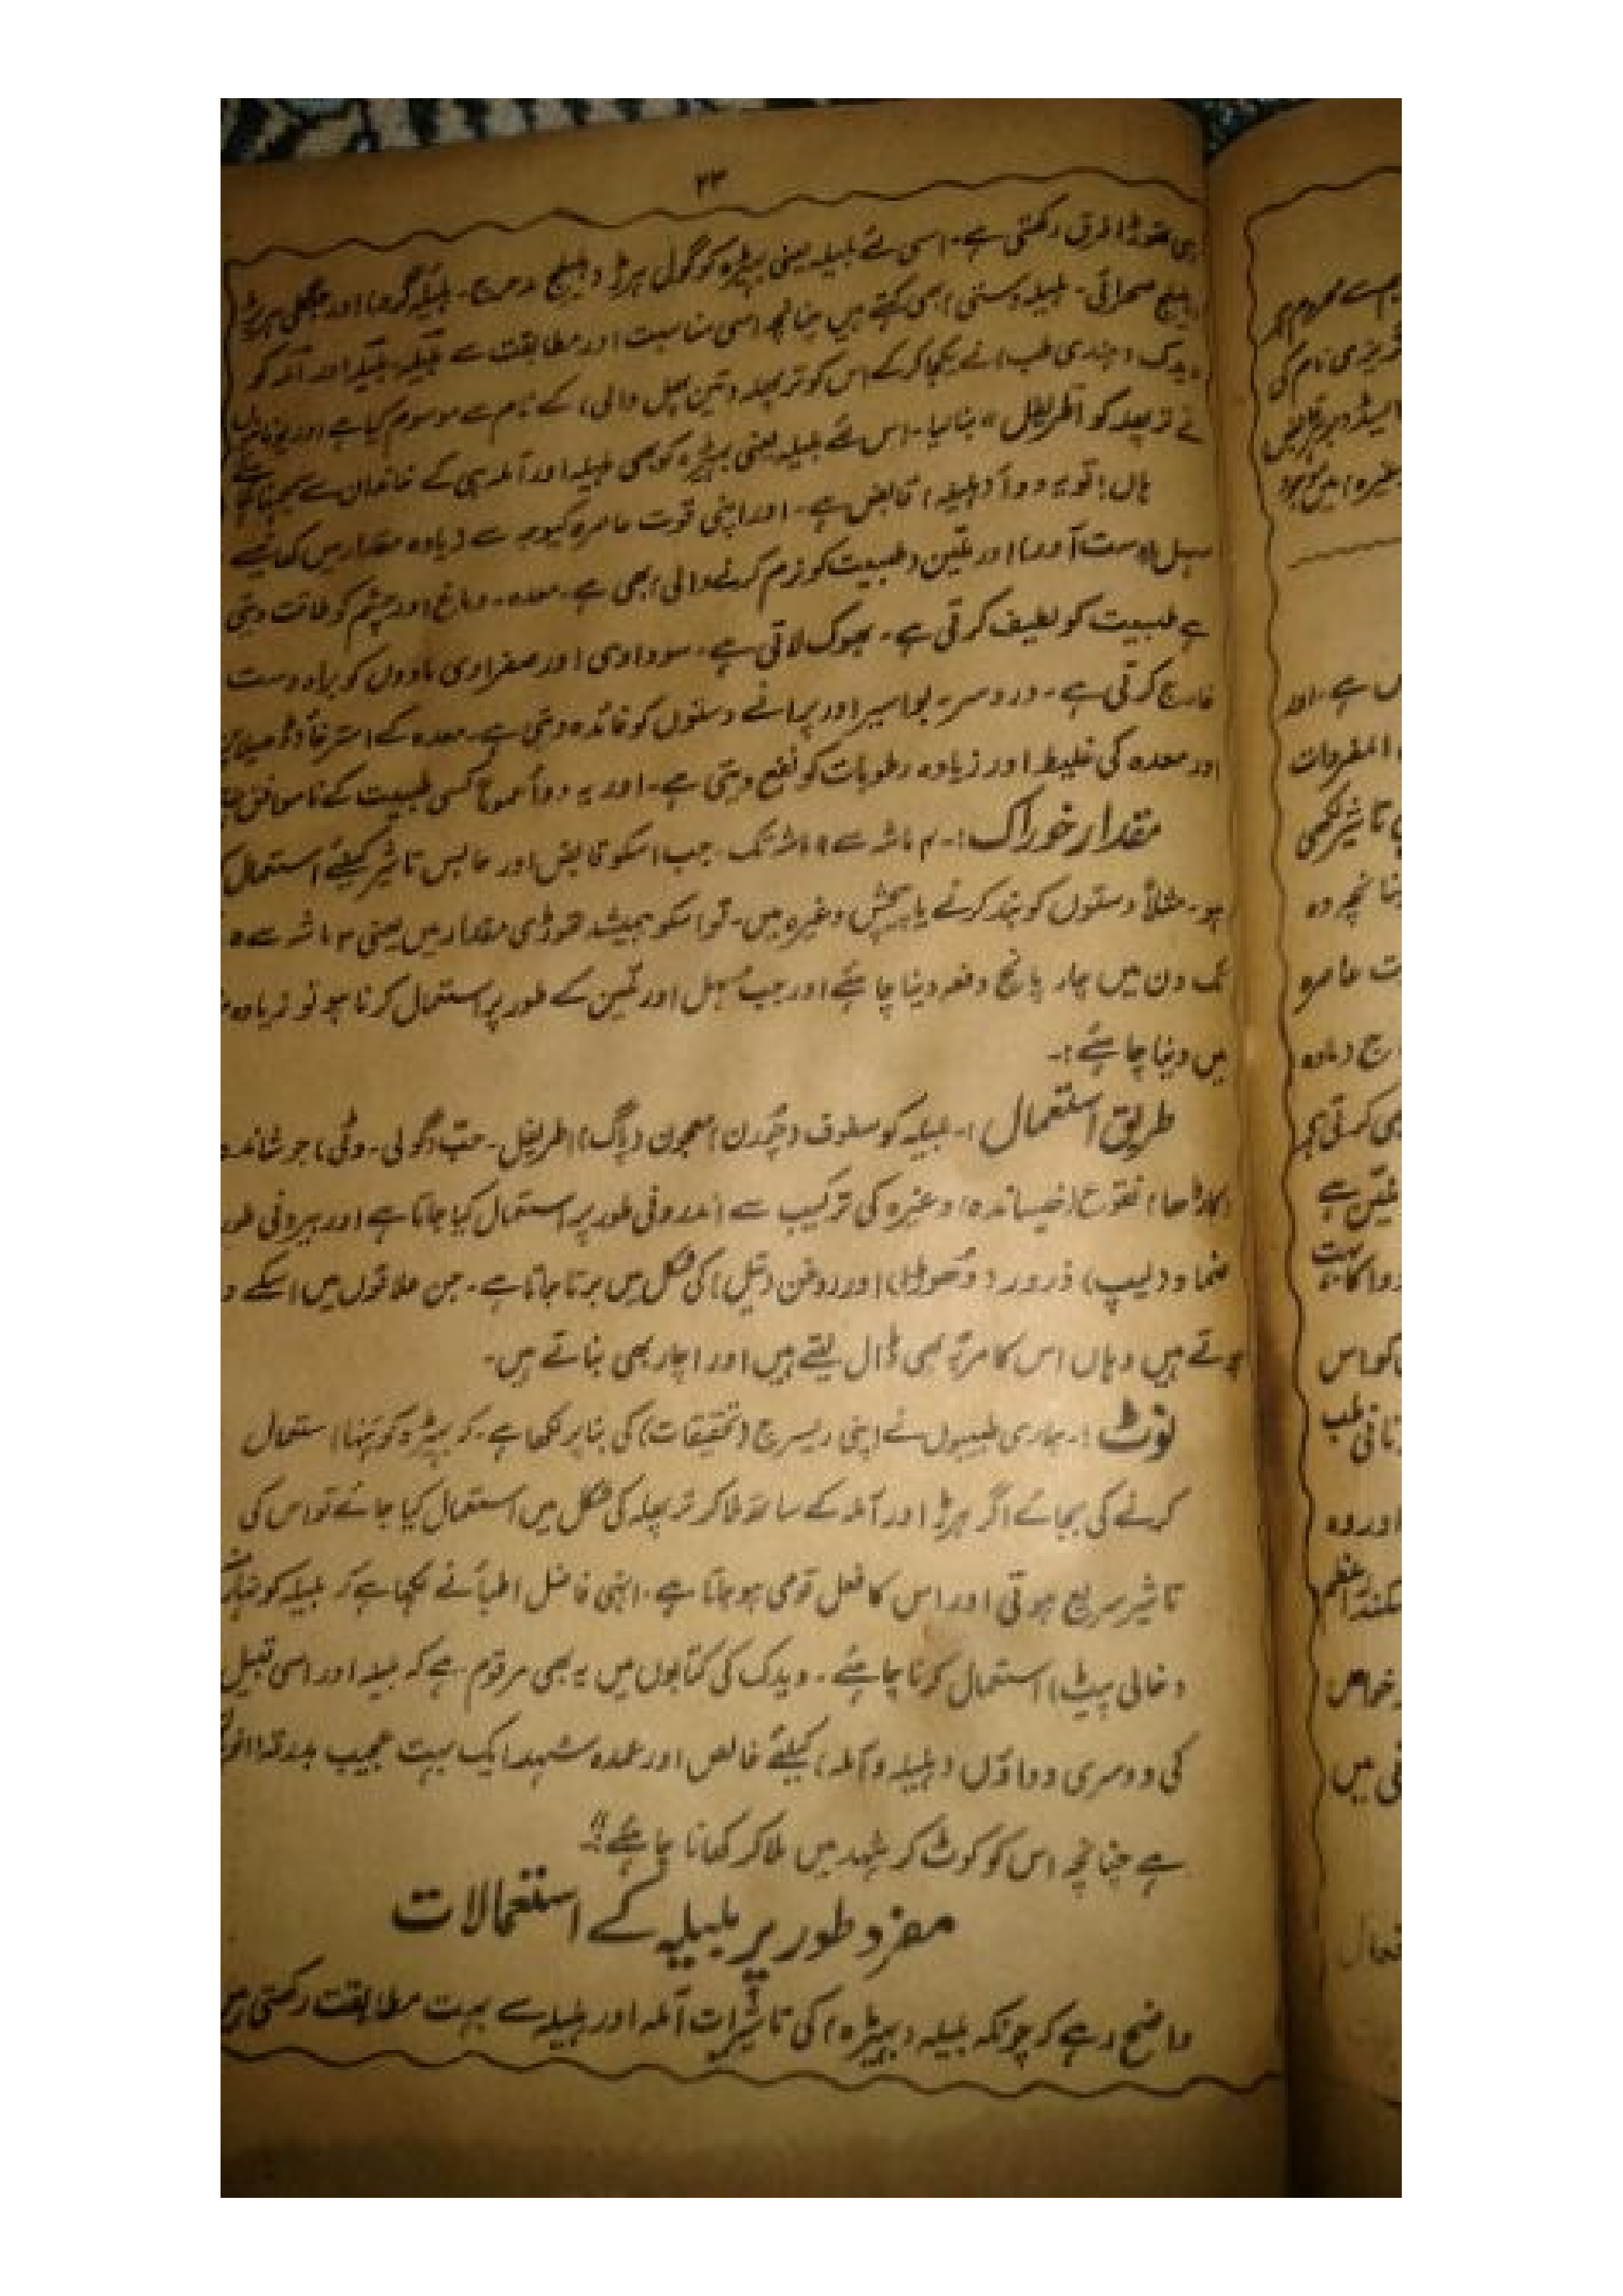 ۲۳
ہی تھوڑا فرق رکھتی ہے۔ اسی لئے بلیلہ یعنی بہیڑہ کو گول ہرڑ (ہلیلج مدحرج۔ ہلیلہ گرد) اور جنگلی ہرڑ
(ہلیلج صحرائی۔ ہلیلہ دشتی) بھی کہتے ہیں چنانچہ اسی مناسبت اور مطابقت سے ہلیلہ، بلیلہ اور آملہ کو
ویدک (ہندی طب) نے یکجا کرکے اس کو ترپھلہ (تین پھل والی) کے نام سے موسوم کیا ہے اور
نے ترپھلہ کو اطریفل بنالیا۔ اس لئے بلیلہ یعنی بہیڑہ کو بھی ہلیلہ اور آملہ ہی کے خاندان سے سمجھنا
ہاں! تو یہ دوا (بلیلہ) قابض ہے۔ اور اپنی قوت عاصرہ کیوجہ سے زیادہ مقدار میں کھانے سے
مسہل (دست آور) اور ملین (طبیعت کو نرم کرنے والی) بھی ہے۔ معدہ۔ دماغ اور چشم کو طاقت دیتی
ہے طبیعت کو لطیف کرتی ہے۔ بھوک لاتی ہے۔ سوداوی اور صفراوی مادوں کو براہ دست
خارج کرتی ہے۔ دردسر۔ بواسیر اور پرانے دستوں کو فائدہ دیتی ہے۔ معدہ کے استرخاء
اور معدہ کی غلیظ اور زیادہ رطوبات کو نفع دیتی ہے۔ اور یہ دوا عموماً کسی طبیعت کے ناموافق
مقدار خوراک:۔ ۳ ماشہ سے ۹ ماشہ تک۔ جب اسکو قابض اور حابس تاثیر کیلئے استعمال
ہو۔ مثلاً دستوں کو بند کرنے یا پیچش وغیرہ میں۔ تو اسکو ہمیشہ تھوڑی مقدار میں یعنی ۳ ماشہ سے ۵
تک دن میں چار پانچ دفعہ دینا چاہئے اور جب مسہل اور ملین کے طور پر استعمال کرنا ہو تو زیادہ
میں دینا چاہئے:۔
طریق استعمال:۔ بلیلہ کو سفوف (چُورن) معجون (پاک) اطریفل۔ حب (گولی۔ وٹی) جوشاندہ
(کاڑھا) نقوع (خیساندہ) وغیرہ کی ترکیب سے اندرونی طور پر استعمال کیا جاتا ہے اور بیرونی طور
ضماد (لیپ) ذرور (دھوڑا) اور روغن (تیل) کی شکل میں برتا جاتا ہے۔ جن علاقوں میں اسکے د
ہوتے ہیں وہاں اس کا مربہ بھی ڈال لیتے ہیں اور اچار بھی بناتے ہیں۔
نوٹ:۔ ہماری طبیبوں نے اپنی ریسرچ (تحقیقات) کی بنا پر لکھا ہے۔ کہ بہیڑہ کو تنہا استعمال
کرنے کی بجائے اگر ہرڑ اور آملہ کے ساتھ ملا کر ترپھلہ کی شکل میں استعمال کیا جائے تو اس کی
تاثیر سریع ہوتی اور اس کا فعل قوی ہوجاتا ہے۔ انہی فاضل اطبأ نے لکھا ہے کہ بلیلہ کو نہار
(خالی پیٹ) استعمال کرنا چاہئے۔ ویدک کی کتابوں میں یہ بھی مرقوم ہے کہ بلیلہ اور اسی قبیل
کی دوسری دواؤں (ہلیلہ و آملہ) کیلئے خالص اور عمدہ شہد ایک بہت عجیب بدرقہ
ہے چنانچہ اس کو کوٹ کر شہد میں ملا کر کھانا چاہئے:۔
مفرد طور پر بلیلہ کے استعمالات
واضح رہے کہ چونکہ بلیلہ (بہیڑہ) کی تاثیرات آملہ اور ہلیلہ سے بہت مطابقت رکھتی ہیں
سے محروم
نام کی
وغیرہ میں موجود
ہے۔ اور
المفردات
تاثیر لکھی
چنانچہ وہ
عاصرہ
کرتی ہے
ملین ہے
کو اس
طب
اور وہ
خواص
میں